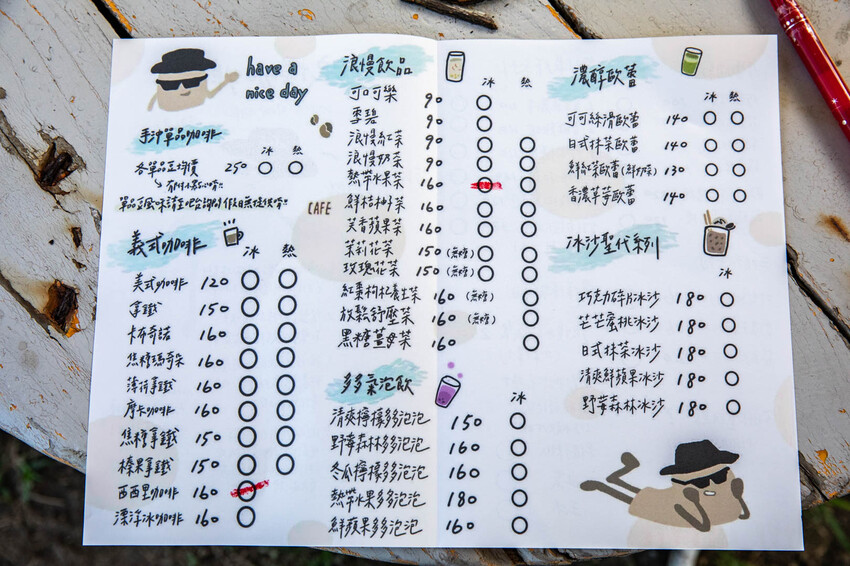 have a
nice day
手沖單品咖啡
冰 熱
各單品豆均價 250
有附小點心唷!!
單品豆風味請至吧台詢問 假日無提供唷!!
CAFE
義式咖啡
冰 熱
美式咖啡 120
拿鐵 150
卡布奇諾 160
焦糖瑪奇朵 160
薄荷拿鐵 160
摩卡咖啡 160
焦糖拿鐵 150
榛果拿鐵 150
西西里咖啡 160
漂浮冰咖啡 160
浪慢飲品
冰 熱
可口可樂 90
雪碧 90
浪慢紅茶 90
浪慢奶茶 90
熱帶水果茶 160
鮮桔柚子茶 160
芙香蘋果茶 160
茉莉花茶 150 (無糖)
玫瑰花茶 150 (無糖)
紅棗枸杞養生茶 160 (無糖)
放鬆舒壓茶 160 (無糖)
黑糖薑母茶 160
多多氣泡飲
冰
清爽檸檬多多泡泡 150
野莓森林多多泡泡 160
冬瓜檸檬多多泡泡 160
熱帶水果多多泡泡 180
鮮蘋果多多泡泡 160
濃醇歐蕾
冰 熱
可可絲滑歐蕾 140
日式抹茶歐蕾 140
鮮奶茶歐蕾 (鮮奶) 130
香濃芋芋歐蕾 140
冰沙聖代系列
冰
巧克力碎片冰沙 180
芒芒蜜桃冰沙 180
日式抹茶冰沙 180
清爽鮮蘋果冰沙 180
野莓森林冰沙 180